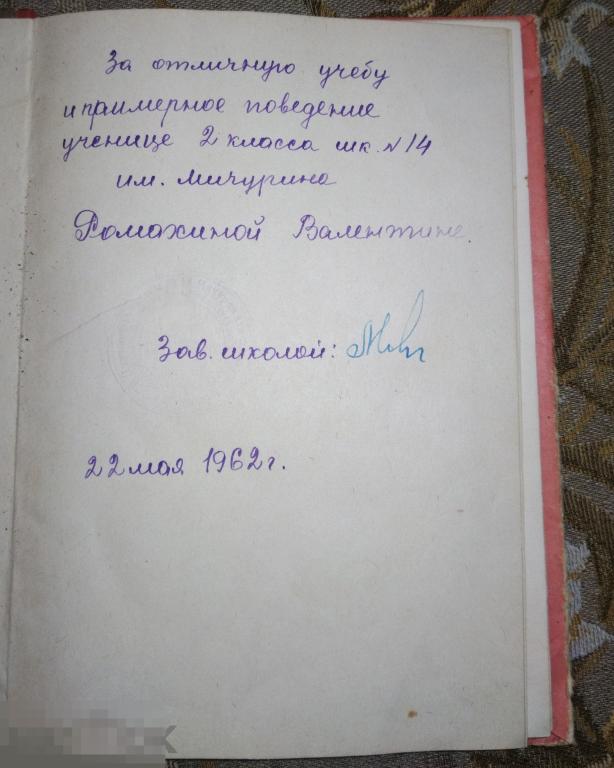 За отличную учебу
и примерное поведение
ученице 2 класса шк. N 14
им. Мичурина
Ромахиной Валентине.
Зав. школой:
22 мая 1962 г.